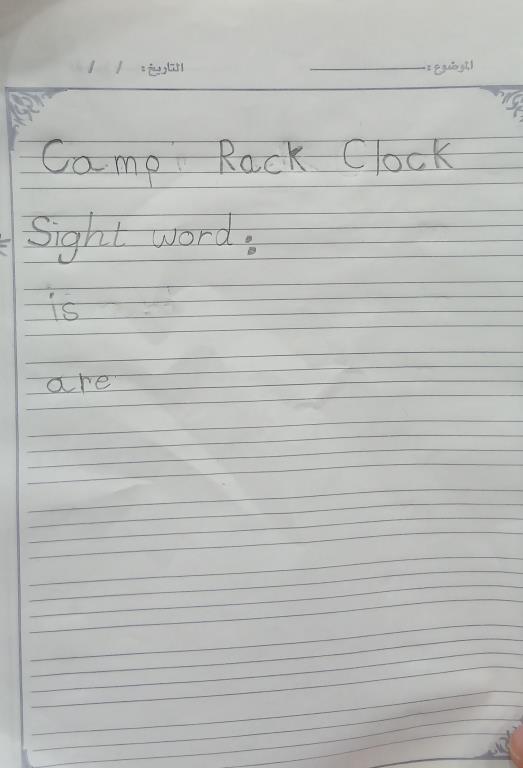 الموضوع: التاريخ: / /
Camp Rack Clock
Sight word:
is
are